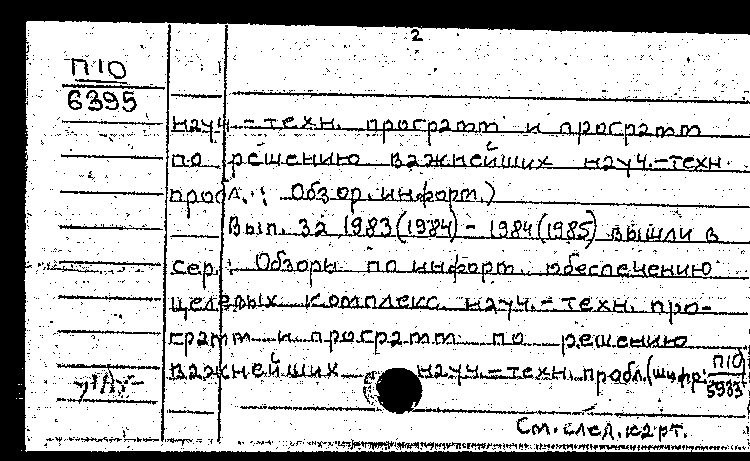 2
П10
6395
науч.-техн. программ и программ
по решению важнейших науч.-техн.
пробл.: Обзор. информ.)
Вып. за 1983(1984)-1984(1985) вышли в
сер.: Обзоры по информ. обеспечению
целевых комплекс. науч.-техн. про-
грамм и программ по решению
важнейших науч.-техн. пробл.(шифр: П10
5983
См. след. карт.